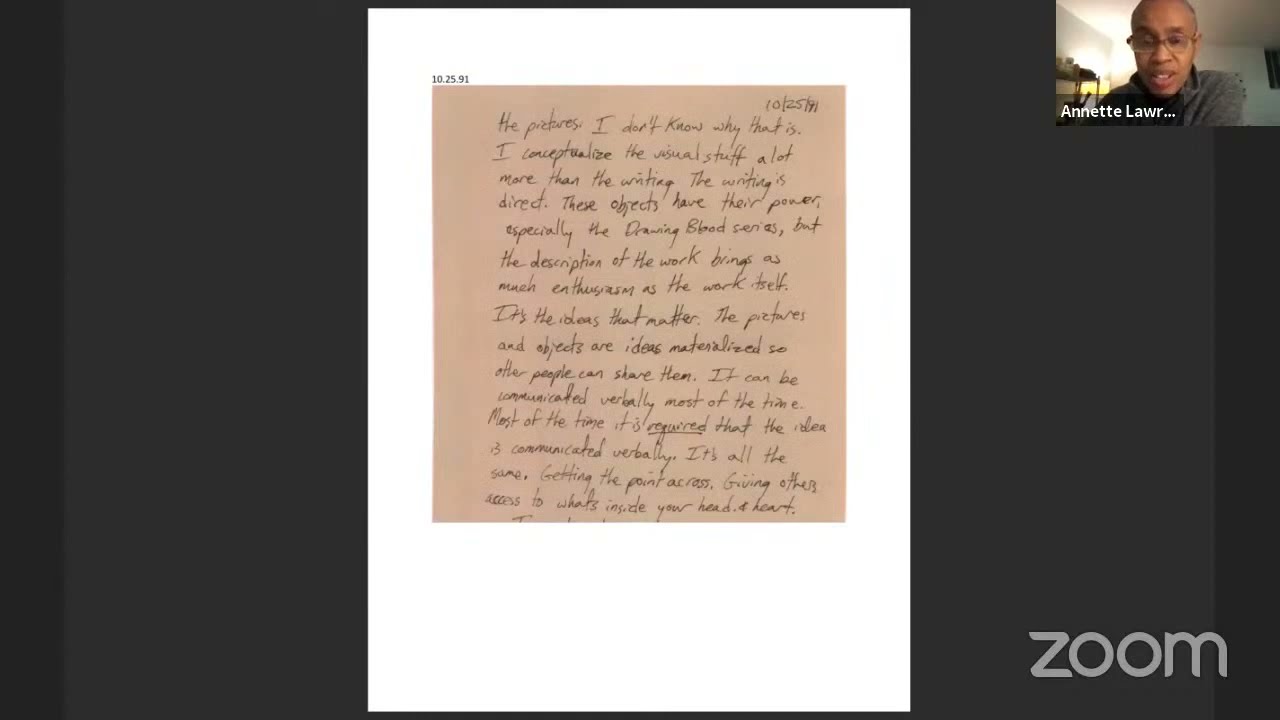 10.25.91
10/25/91
the pictures. I don't know why that is.
I conceptualize the visual stuff a lot
more than the writing. The writing is
direct. These objects have their power,
especially the Drawing Blood series, but
the description of the work brings as
much enthusiasm as the work itself.
It's the ideas that matter. The pictures
and objects are ideas materialized so
other people can share them. It can be
communicated verbally most of the time.
Most of the time it is required that the idea
is communicated verbally. It's all the
same. Getting the point across. Giving others
access to what's inside your head & heart.
Annette Lawr...
zoom